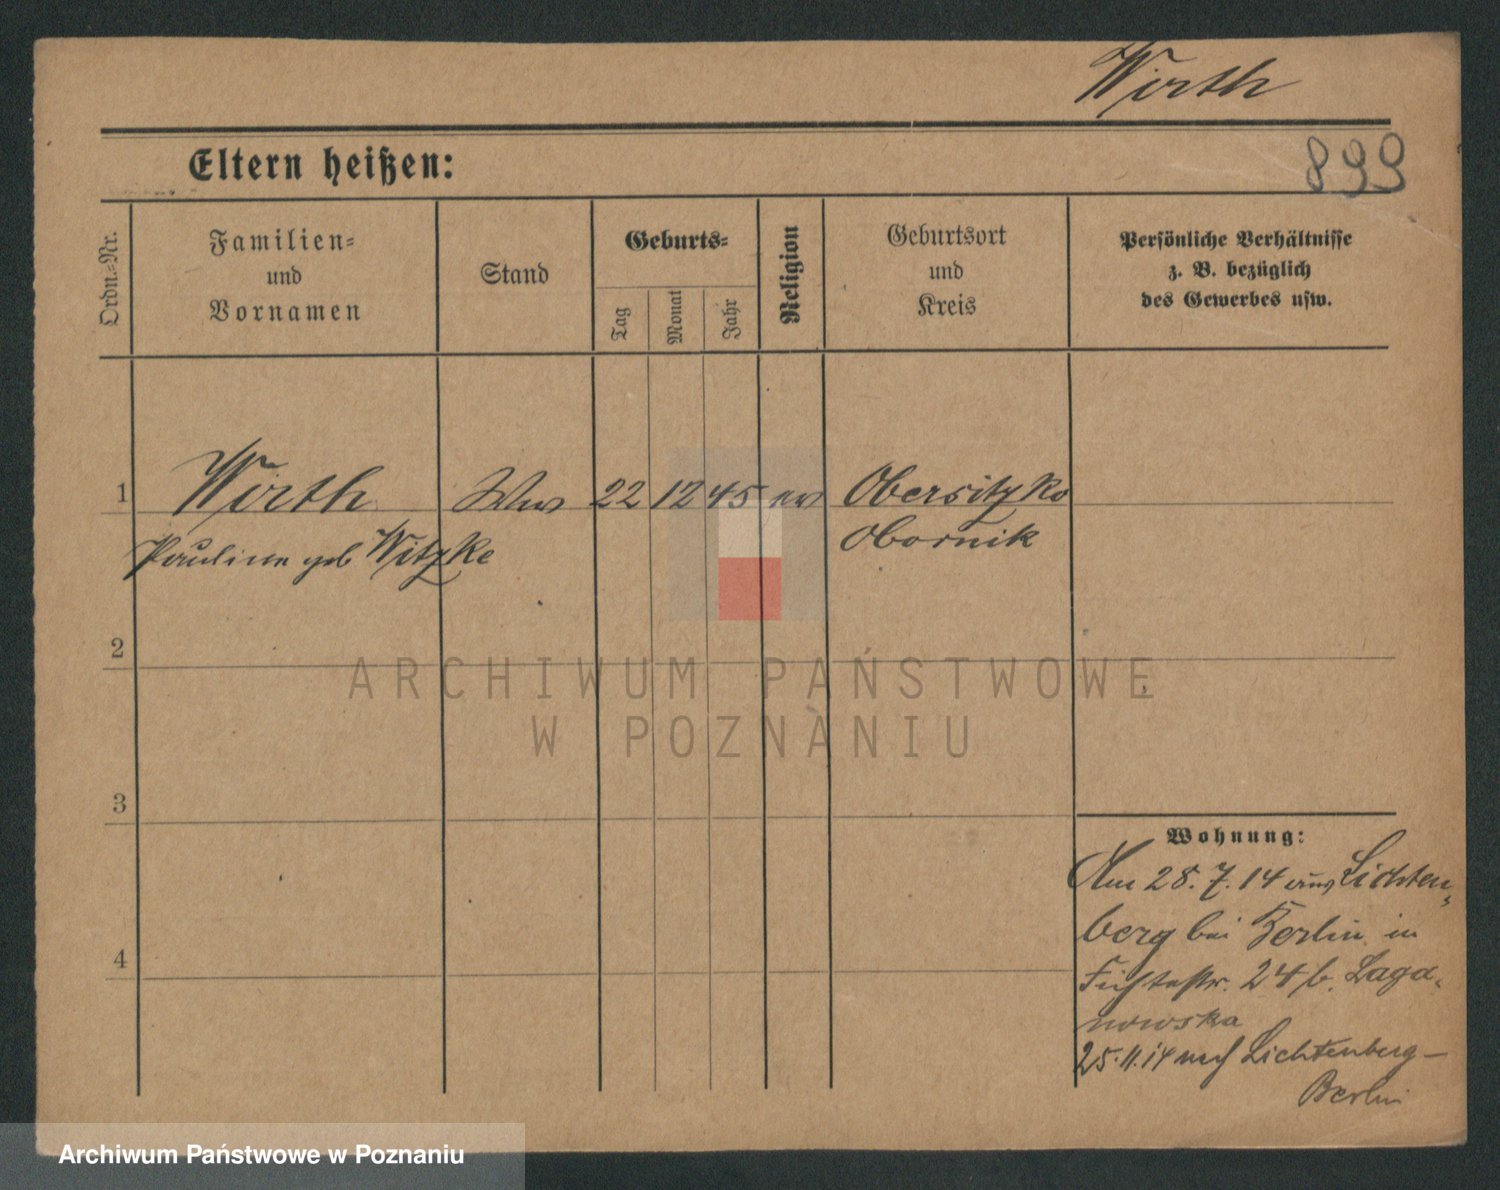 Wirth
Eltern heißen:
899
Ordn.-Nr.
Familien-
und
Vornamen
Stand
Geburts-
Tag
Monat
Jahr
Religion
Geburtsort
und
Kreis
Persönliche Verhältnisse
z. B. bezüglich
des Gewerbes usw.
1 Wirth Ww 22 12 45 ev Obersitzko
Pauline geb Witzke Obornik
2
ARCHIWUM PAŃSTWOWE
W POZNANIU
3
Wohnung:
Am 28. 7. 14 aus Lichten-
berg bei Berlin in
24 b.
nowska
25.11.14 nach Lichtenberg-
Berlin
4
Archiwum Państwowe w Poznaniu